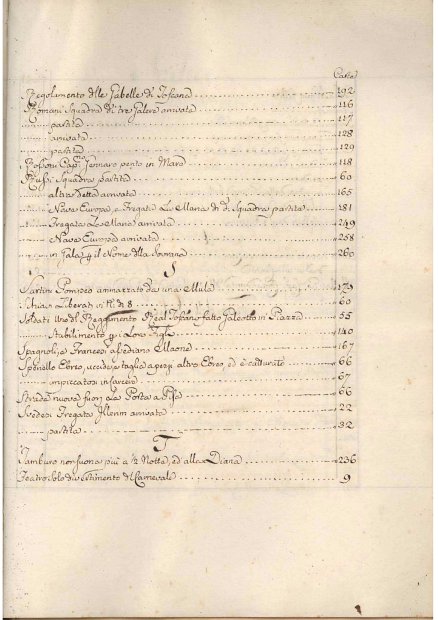 Carte
Regolamento delle Gabelle di Toscana 192
Romani Squadra di tre Galere arrivata 116
partita 117
arrivata 128
partita 129
Cap.no Gennaro perito in Mare 118
Russi Squadra partita 60
altra detta arrivata 165
Nave Europa, e Fregata La Maria di d.a Squadra partita 181
Fregata La Maria arrivata 249
Nave Europa arrivata 258
in Gala p il Nome della Sovrana 260
S
Sartini Pompeo ammazzato da una Mula 179
Schiavi Liberati in N.o di 8 60
Soldati Uno del Reggimento Real Toscano fatto Galeotto in Piazza 55
Stabilimento p i Loro Figli 140
Spagnoli, e Francesi assediano Maone 167
Spinello Ebreo, uccide, e taglia a pezzi altro Ebreo, ed è catturato 66
impiccatosi in carcere 67
Strade nuove fuori la Porta a Pisa 66
Svedesi Fregata Illerim arrivata 22
partita 32
T
Tamburo non suona più a 1/2 Notte, ed alla Diana 236
Teatro solo divertimento di Carnevale 9